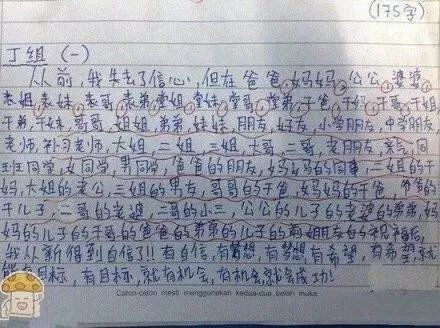 (175字)
丁组 (一)
从前，我失去了信心，但在爸爸，妈妈，公公，婆婆，
表姐，表妹，表哥，表弟，堂姐，堂妹，堂哥，堂弟，干爸，干妈，干哥，干姐
干弟，干妹，哥哥，姐姐，弟弟，妹妹，朋友，好友，小学朋友，中学朋友
老师，补习老师，大姐，二姐，三姐，大哥，二哥，老朋友，
班同学，女同学，男同学，爸爸的朋友，妈妈的同事，二姐的干
妈，大姐的老公，三姐的男友，哥哥的干爸，妈妈的干爸，爸爸的
干儿子，二哥的老婆，二哥的小三，公公的儿子的老婆的弟弟，妈
妈的儿子的干哥的爸爸的弟弟的儿子的前姐朋友的祝福后，
我从新得到自信了!! 有自信，有梦想，有梦想，有希望，有希望，就
有目标，有目标，就有机会，有机会，就会成功!
Calon-calon mesti menggunakan kedua-dua belah muka